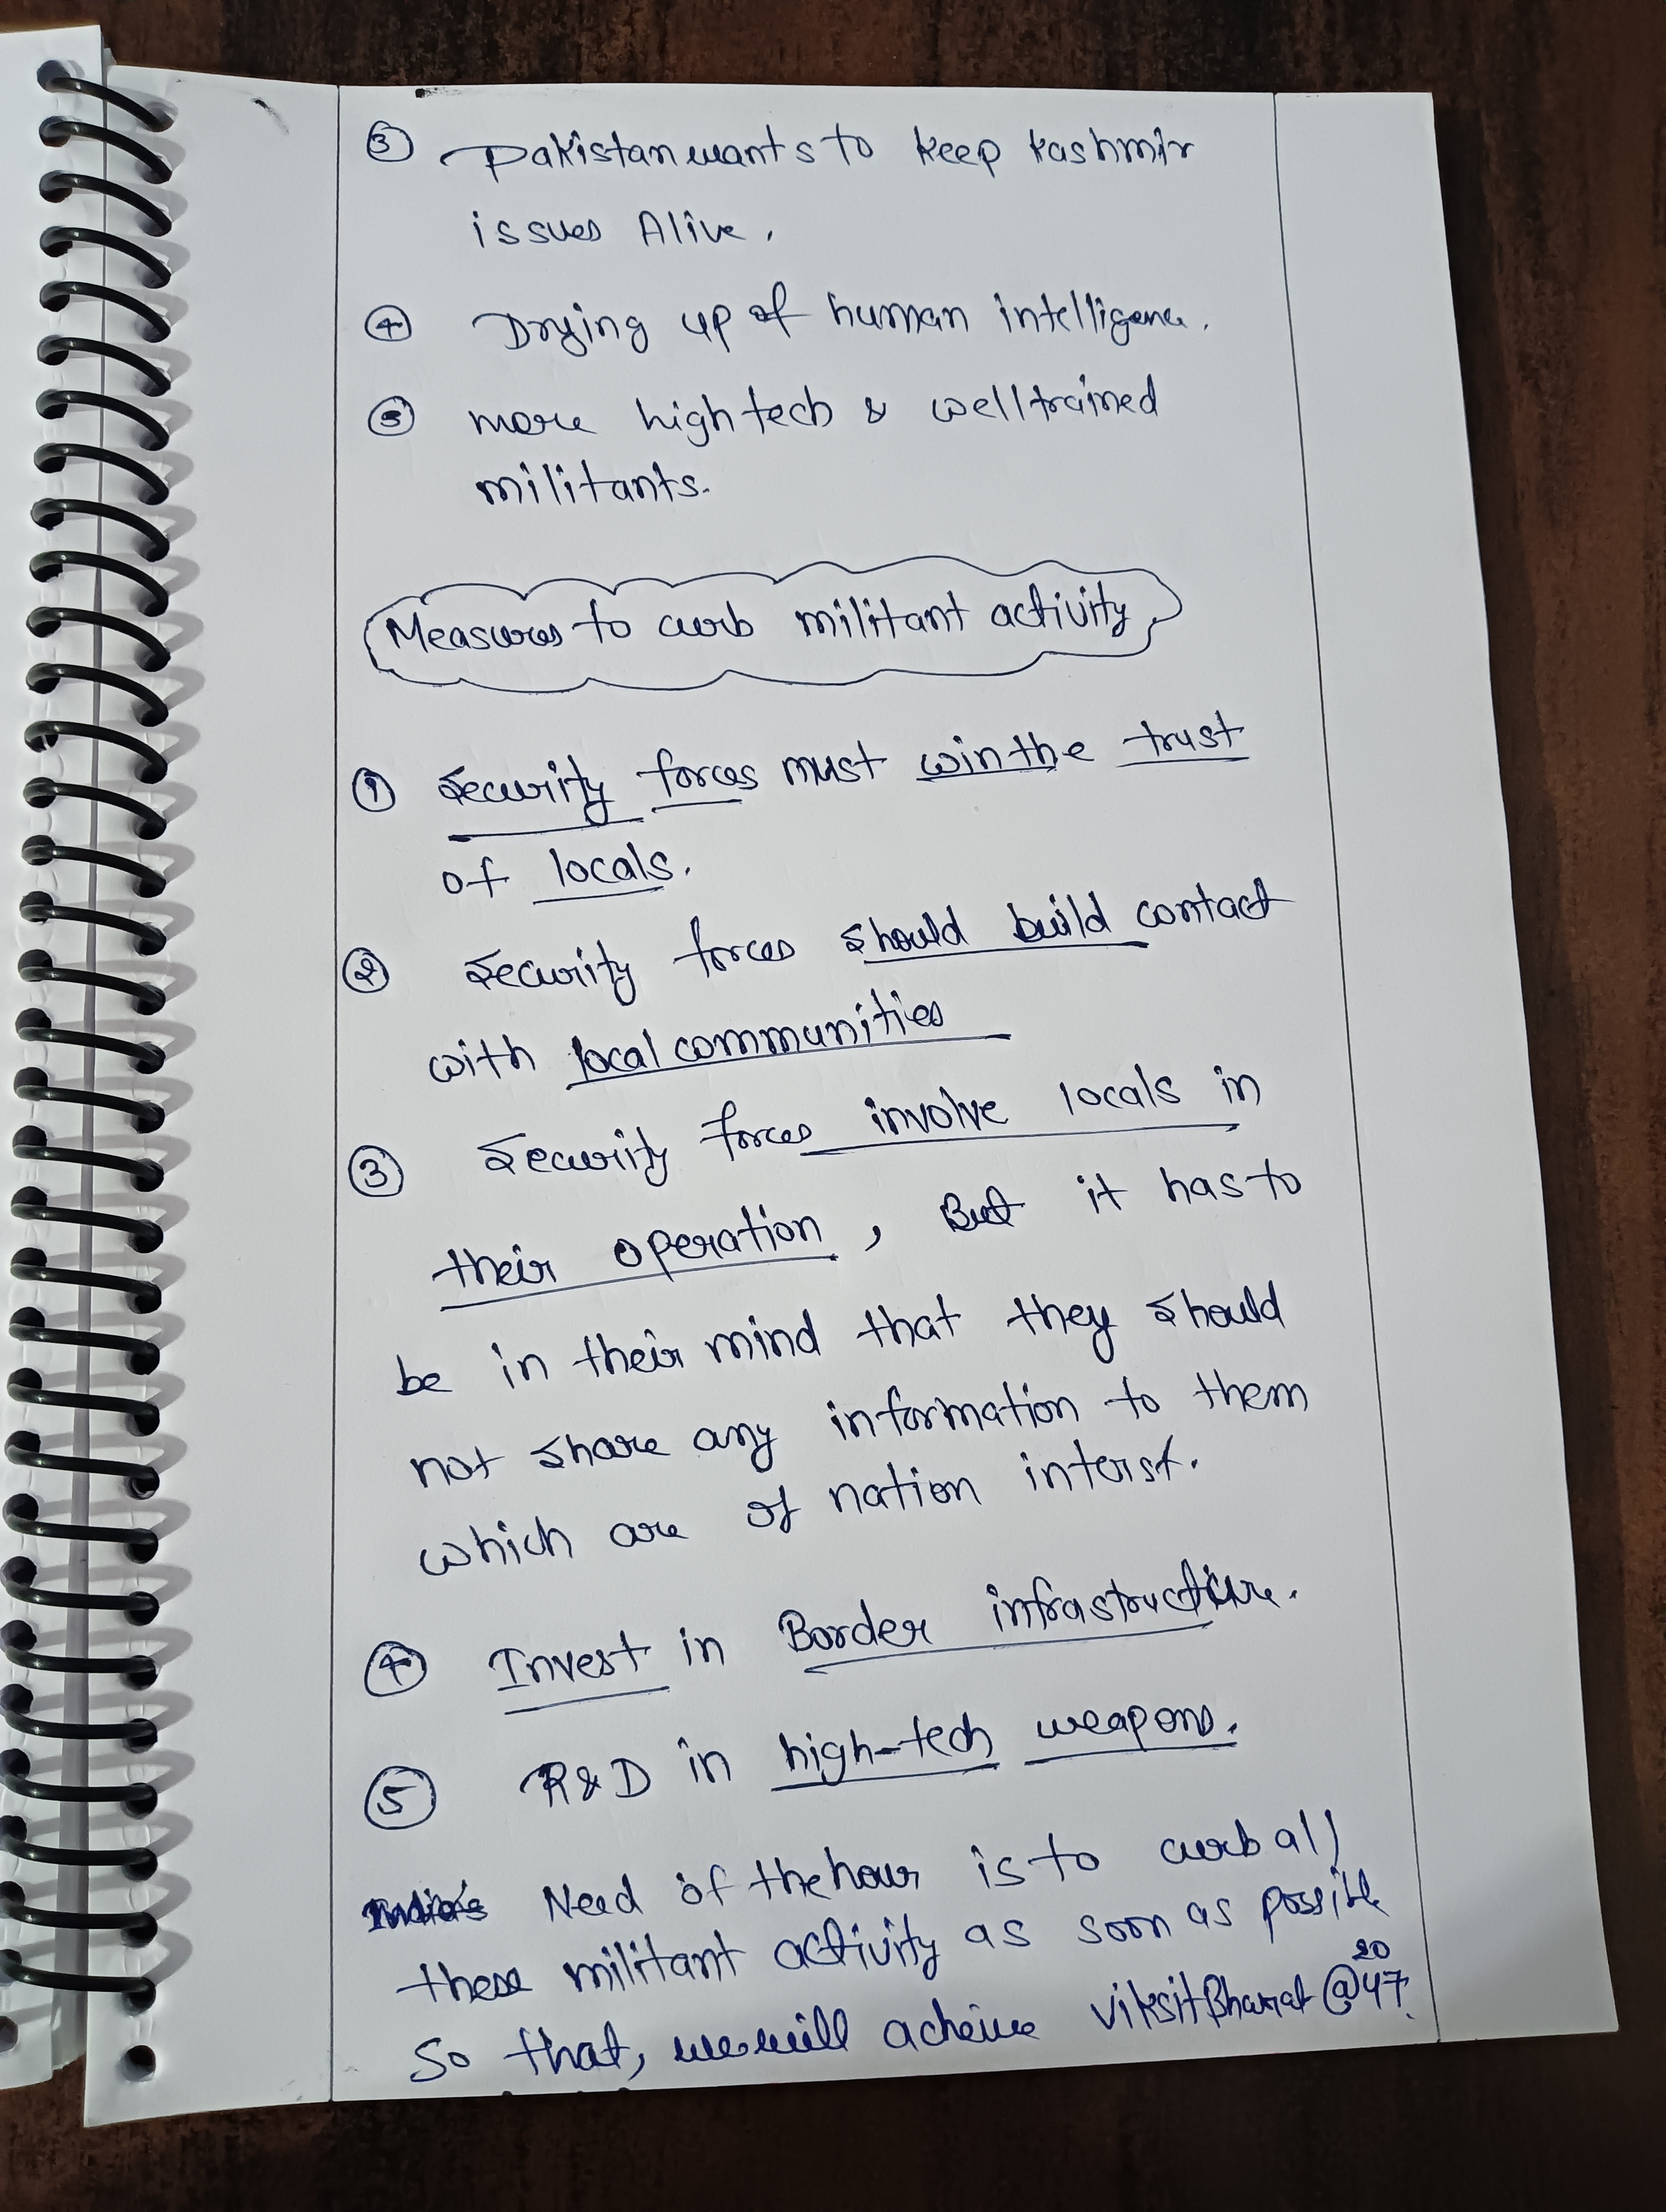 ③ Pakistan wants to keep Kashmir
issues Alive.
④ Drying up of human intelligence.
⑤ more high tech & well trained
militants.
Measures to curb militant activity
① Security forces must win the trust
of locals.
② Security forces should build contact
with local communities
③ Security forces involve locals in
their operation, But it has to
be in their mind that they should
not share any information to them
which are of nation interst.
④ Invest in Border infrastructure.
⑤ R&D in high-tech weapons.
Need of the hour is to curb all
these militant activity as soon as possible
So that, we will acheive Viksit Bharat @2047.